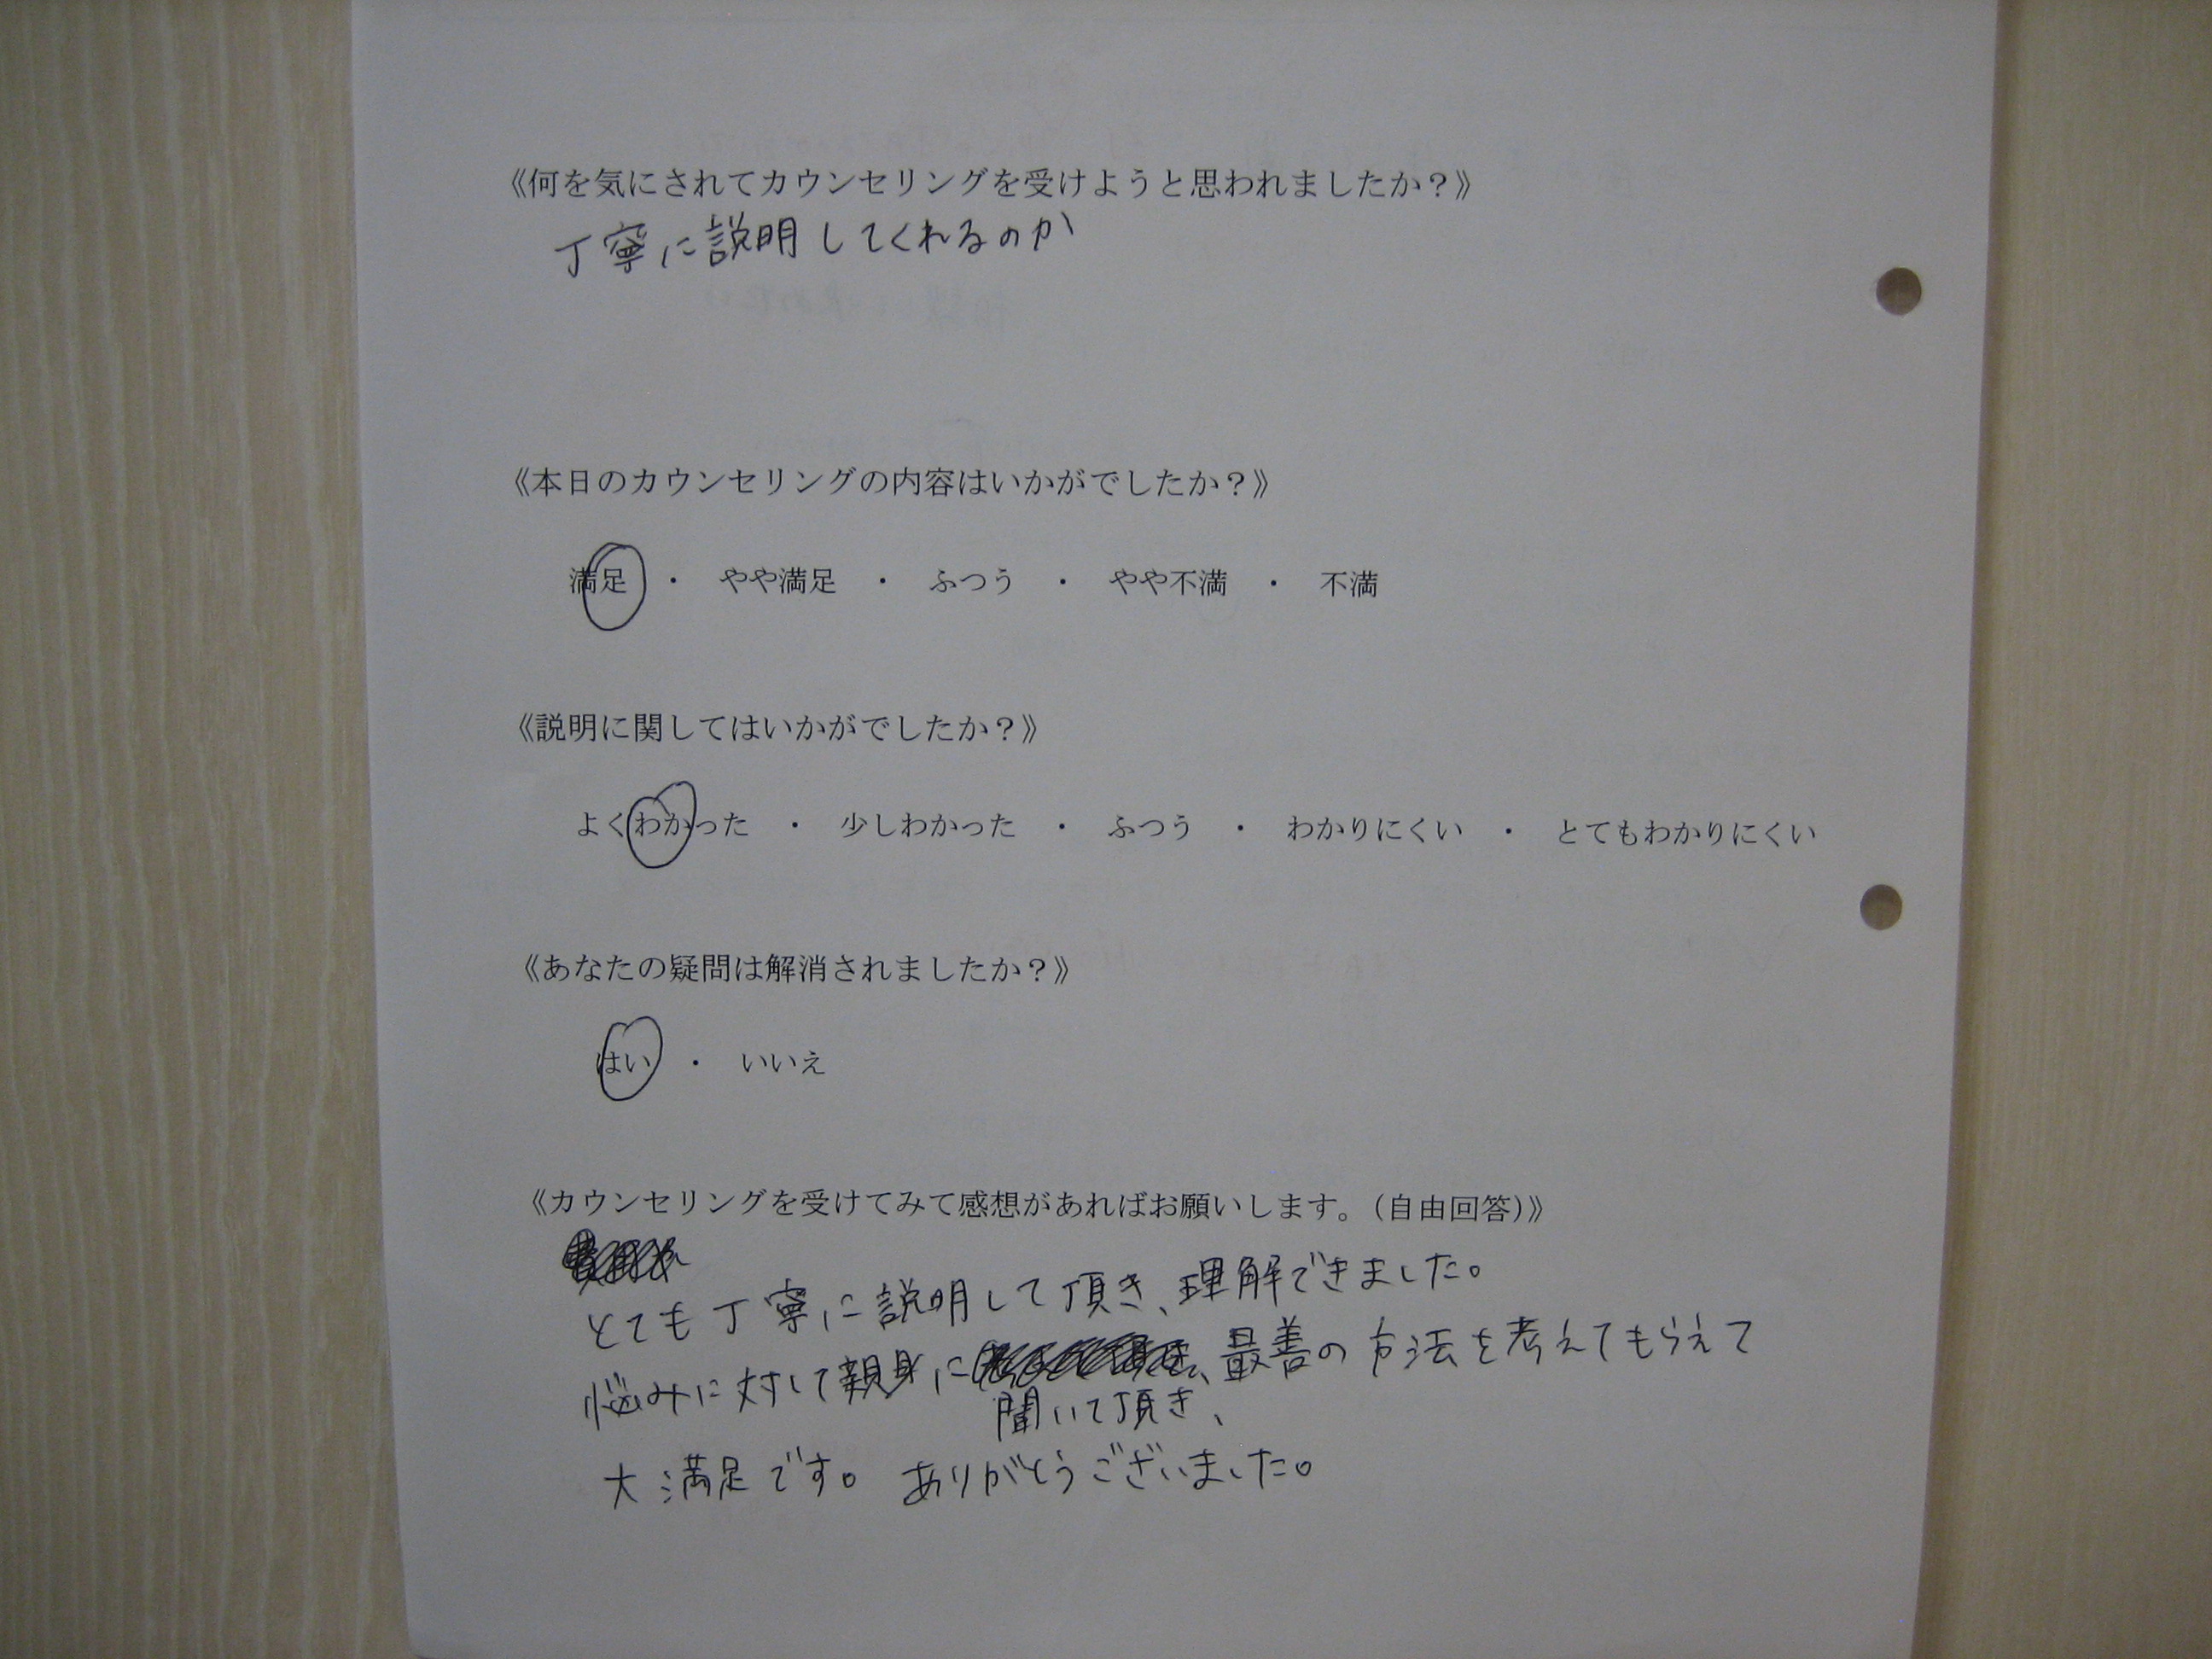 《何を気にされてカウンセリングを受けようと思われましたか？》
丁寧に説明してくれるのか
《本日のカウンセリングの内容はいかがでしたか？》
満足 ・ やや満足 ・ ふつう ・ やや不満 ・ 不満
《説明に関してはいかがでしたか？》
よくわかった ・ 少しわかった ・ ふつう ・ わかりにくい ・ とてもわかりにくい
《あなたの疑問は解消されましたか？》
はい ・ いいえ
《カウンセリングを受けてみて感想があればお願いします。（自由回答）》
とても丁寧に説明して頂き、理解できました。
悩みに対して親身に、最善の方法を考えてもらえて
聞いて頂き、
大満足です。ありがとうございました。